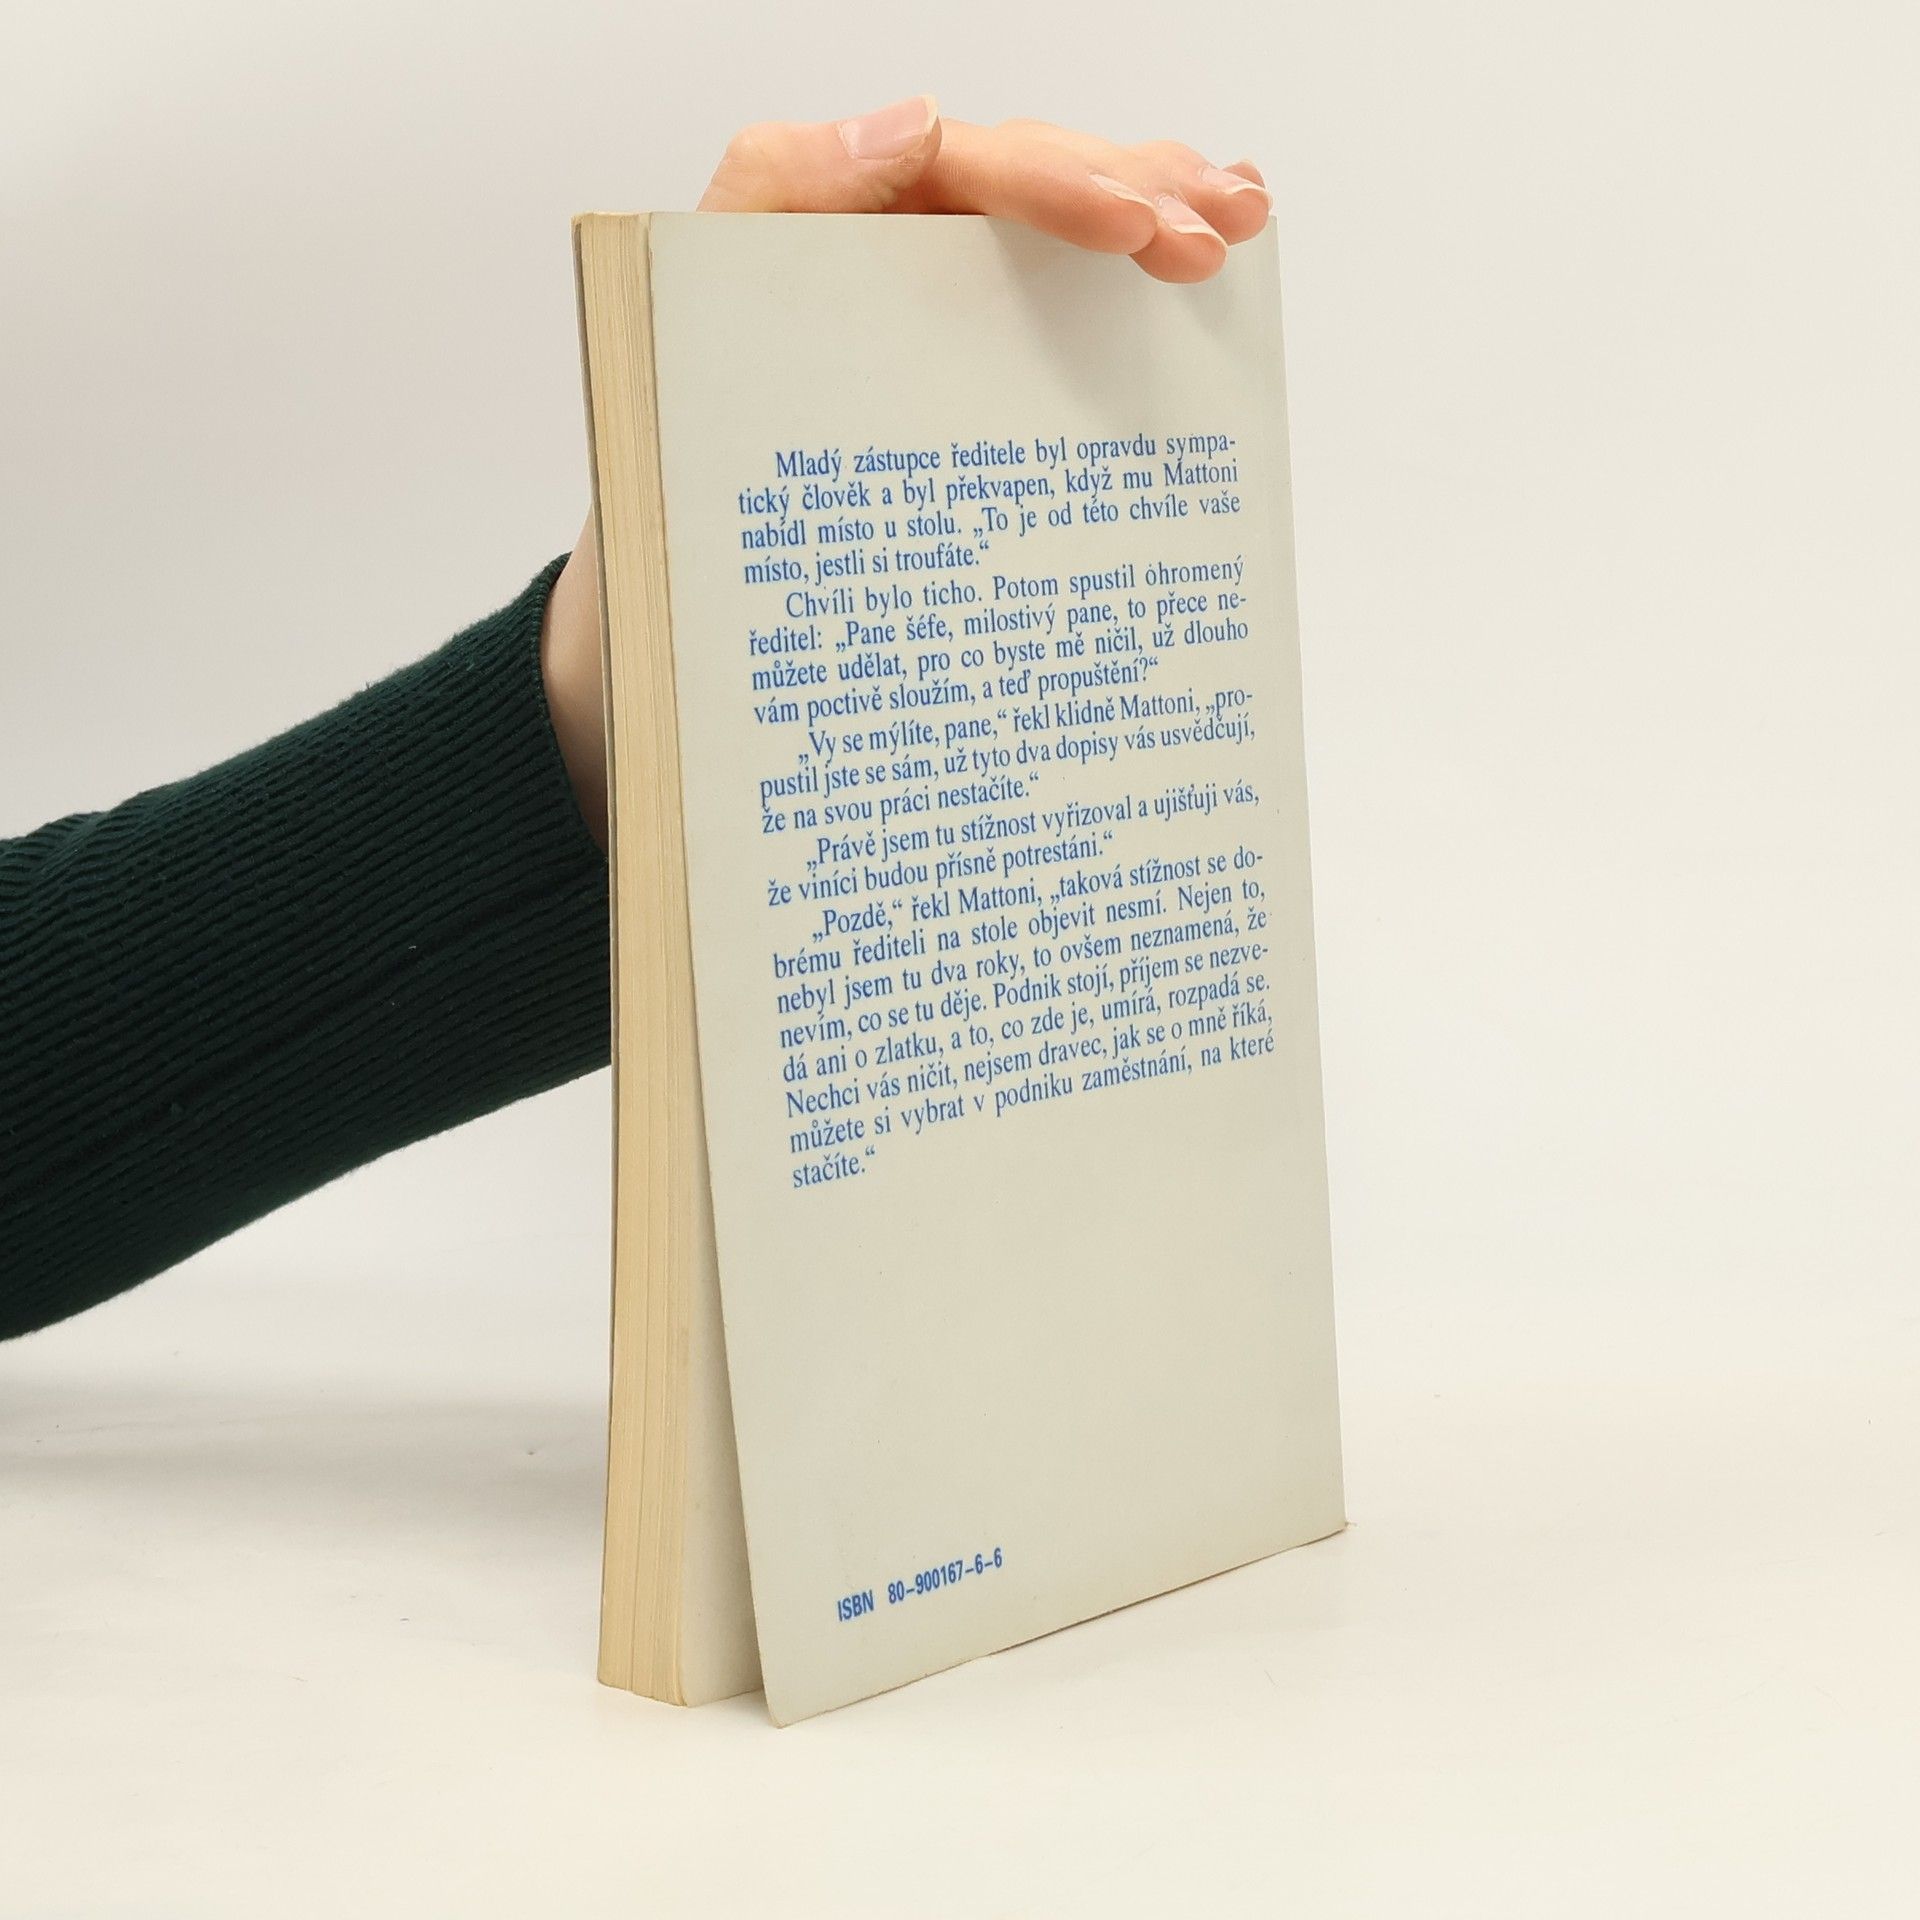 Mladý zástupce ředitele byl opravdu sympa-
tický člověk a byl překvapen, když mu Mattoni
nabídl místo u stolu. „To je od této chvíle vaše
místo, jestli si troufáte.“
Chvíli bylo ticho. Potom spustil ohromený
ředitel: „Pane šéfe, milostivý pane, to přece ne-
můžete udělat, pro co byste mě ničil, už dlouho
vám poctivě sloužím, a teď propuštění?“
„Vy se mýlíte, pane,“ řekl klidně Mattoni, „pro-
pustil jste se sám, už tyto dva dopisy vás usvědčují,
že na svou práci nestačíte.“
„Právě jsem tu stížnost vyřizoval a ujišťuji vás,
že viníci budou přísně potrestáni.“
„Pozdě,“ řekl Mattoni, „taková stížnost se do-
brému řediteli na stole objevit nesmí. Nejen to,
nebyl jsem tu dva roky, to ovšem neznamená, že
nevím, co se tu děje. Podnik stojí, příjem se nezve-
dá ani o zlatku, a to, co zde je, umírá, rozpadá se.
Nechci vás ničit, nejsem dravec, jak se o mně říká,
můžete si vybrat v podniku zaměstnání, na které
stačíte.“
ISBN 80–900167–6–6